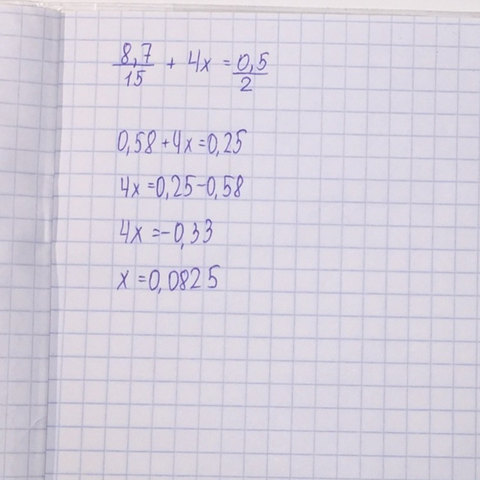 8,7/15 + 4x = 0,5/2
0,58 + 4x = 0,25
4x = 0,25 - 0,58
4x = - 0,33
x = 0,0825